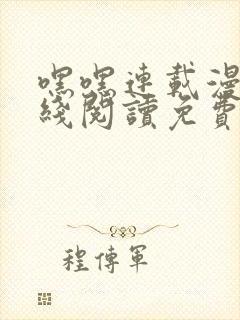 嘿嘿連載漫
綫閱讀免費
程傳軍